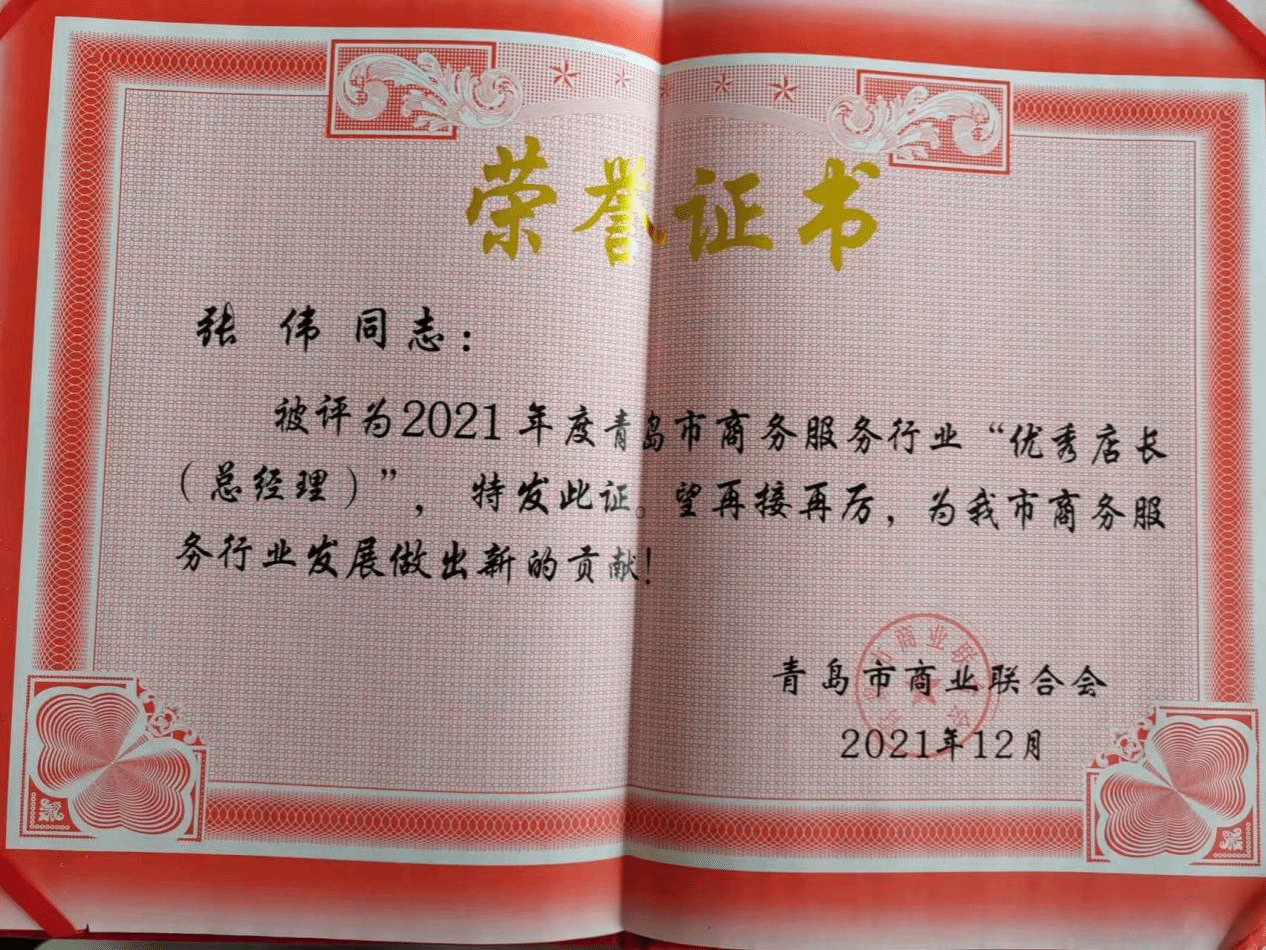 荣誉证书
张 伟 同志：
被评为2021年度青岛市商务服务行业“优秀店长
（总经理）”，特发此证。望再接再厉，为我市商务服
务行业发展做出新的贡献！
青岛市商业联合会
2021年12月